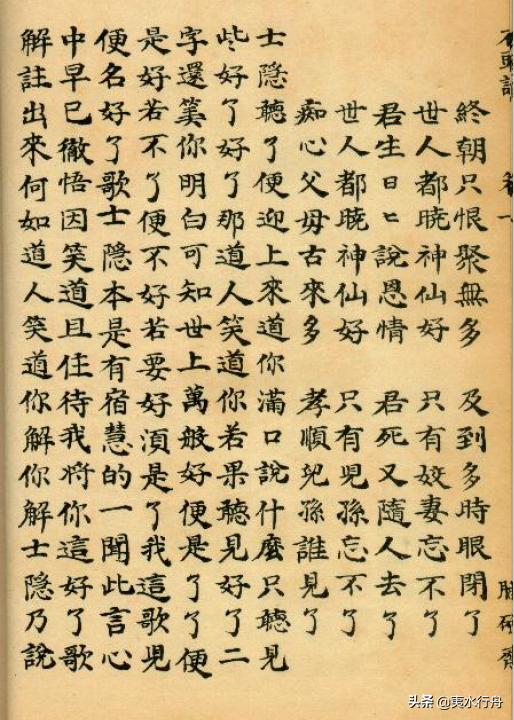 石頭記 卷一 脂硯齋
終朝只恨聚無多 及到多時眼閉了
世人都曉神仙好 只有姣妻忘不了
君生日〻說恩情 君死又隨人去了
世人都曉神仙好 只有兒孫忘不了
痴心父母古來多 孝順兒孫誰見了
士隱聽了便迎上來道你滿口說什麼只聽見
些好了好了那道人笑道你若果聽見好了二
字還筭你明白可知世上萬般好便是了了便
是好若不了便不好若要好須是了我這歌兒
便名好了歌士隱本是有宿慧的一聞此言心
中早已徹悟因笑道且住待我將你這好了歌
解註出來何如道人笑道你解你解士隱乃說
头条 @夷水行舟